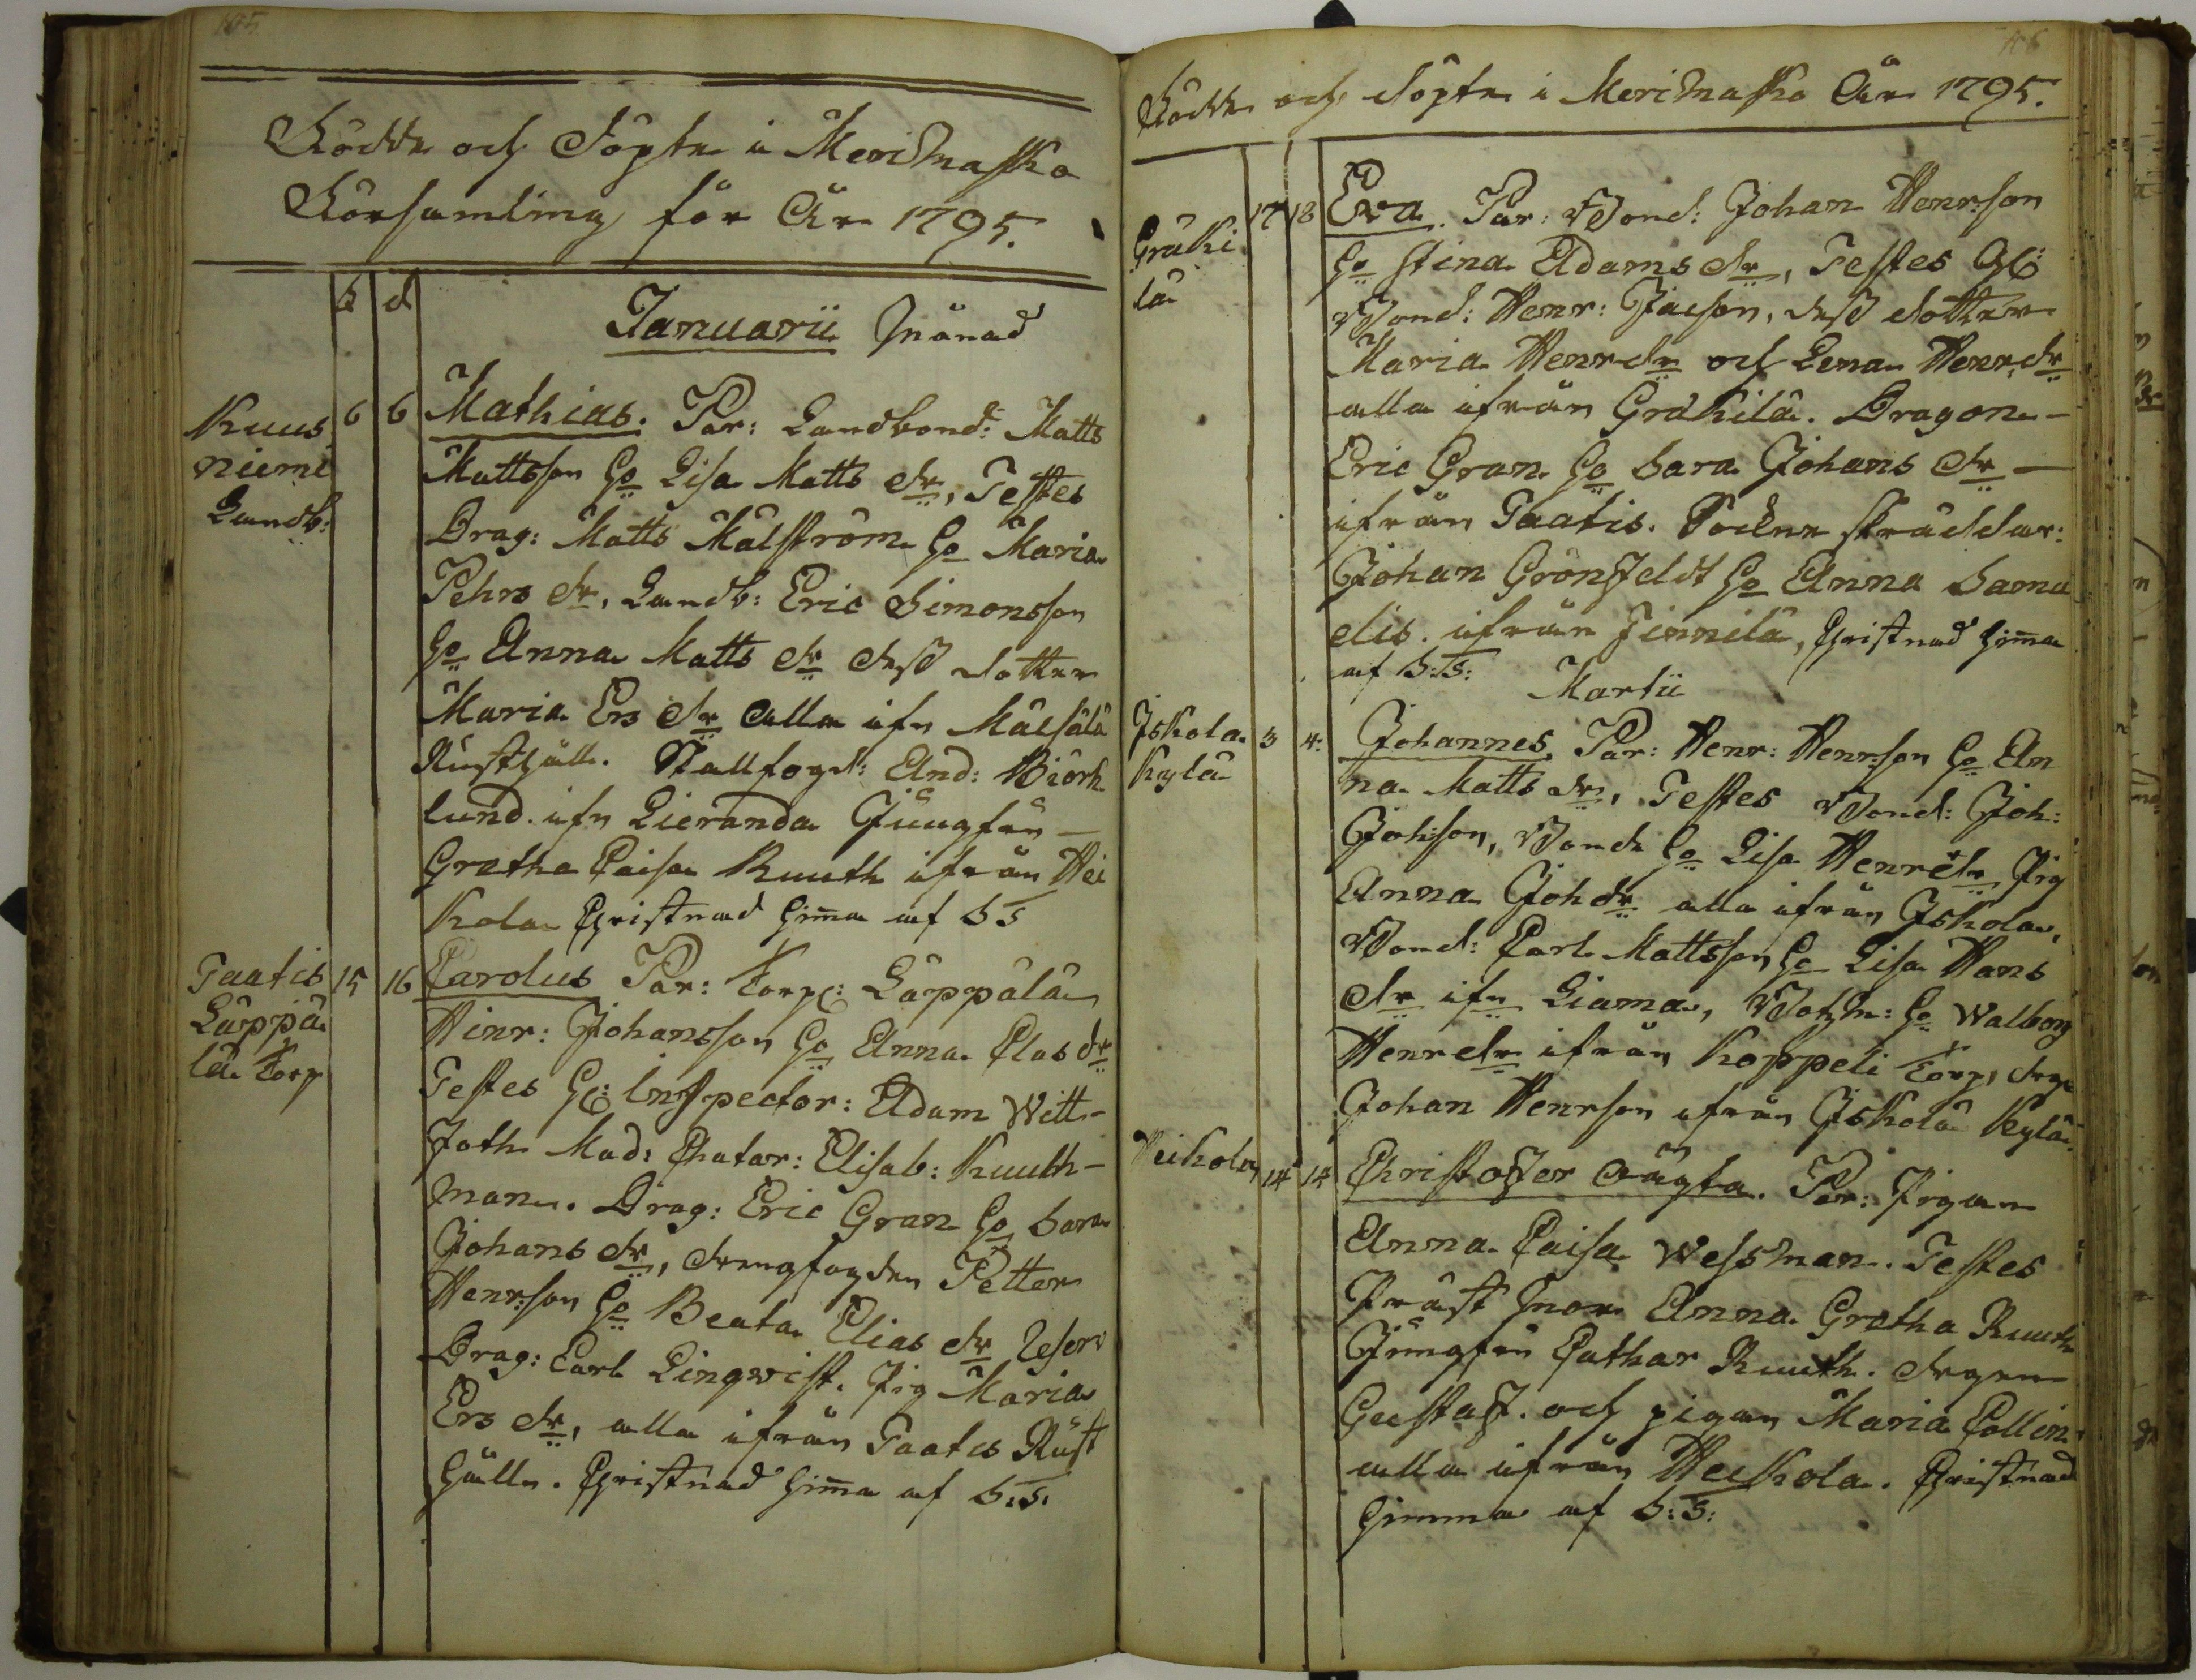 105
Födde och Döpte i Merimasko
Församling för År 1795.
f d
Januarii Månad
Kuus
niemi
Landb:
6 6 Mathias. Par: Landbond: Matts
Mattsson Ho Lisa Matts dr, Testes
Drag: Matts Malström Ho Maria
Pehrs dr, Landb: Eric Simonsson
Ho Anna Matts dr dess dotter
Maria Ers dr alla ifn
Rusthåll. Stallfogd: And: Biörk
lund ifn Lieranda Jungfrn
Gretha Caisa Ruuth ifrån Hei
kola Christnad hema af S S
Taatis
Läppä
lä Torp
15 16 Carolus Par: Torp: Läppälä
Hinr: Johansson Ho Anna Clas dr
Testes H: Inspector: Adam Witt-
foth Mad: Chatar: Elisab: Kuuth-
man. Drag: Eric Gran Ho Sara
Johans dr, drengfogden Petter
Henrson Ho Beata Elias dr Reserv
Drag: Carl Linqvist. Pig Maria
Ers dr, alla ifrån Taatis Rust
håll. Christnad hema af S:S:
106
Födde och döpte i Merimasko År 1795.
Gräki
lä
17 18 Eva. Par: Bond: Johan Henrson
Ho Stina Adams dr, Testes
Bond: Henr: Jacson, dess dotter
Maria Henrdr och Lena Henrdr
alla ifrån Gräkilä. Dragon
Eric Gran Ho Sara Johans dr
ifrån Taatis. Sockne skräddar:
Johan Grönfeldt Ho Anna Samu
elis. ifrån Finnilä, Christnad hema
af S:S: Martii
Iskola
Kylä
3 4: Johannes. Par: Henr: Henrson Ho An
na Matts dr, Testes Bond: Joh:
Johson, Bond Ho Lisa Henrdr Pig
Anna Johdr alla ifrån Iskola,
Bond: Carl Mattsson Ho Lisa Hans
dr ifn Liama, Ho Walborg
Henrdr ifrån Koppeli Torp, drg
Johan Henrson ifrån Iskola Kylä
Heikola
14 14 Christofer oägta. Par: Pigan
Anna Caisa Wessman. Testes
Präst mor Anna Gretha Ruuth
Jungfru Cathar Ruuth. drgen
Gustaf. och pigan Maria Collin
alla ifrån Heikola. Christnad
Hemma af S:S: